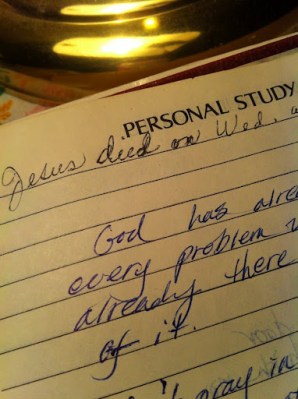 PERSONAL STUDY
Jesus died on Wed.
God has alrea
every problem
already there
of it.
pray in